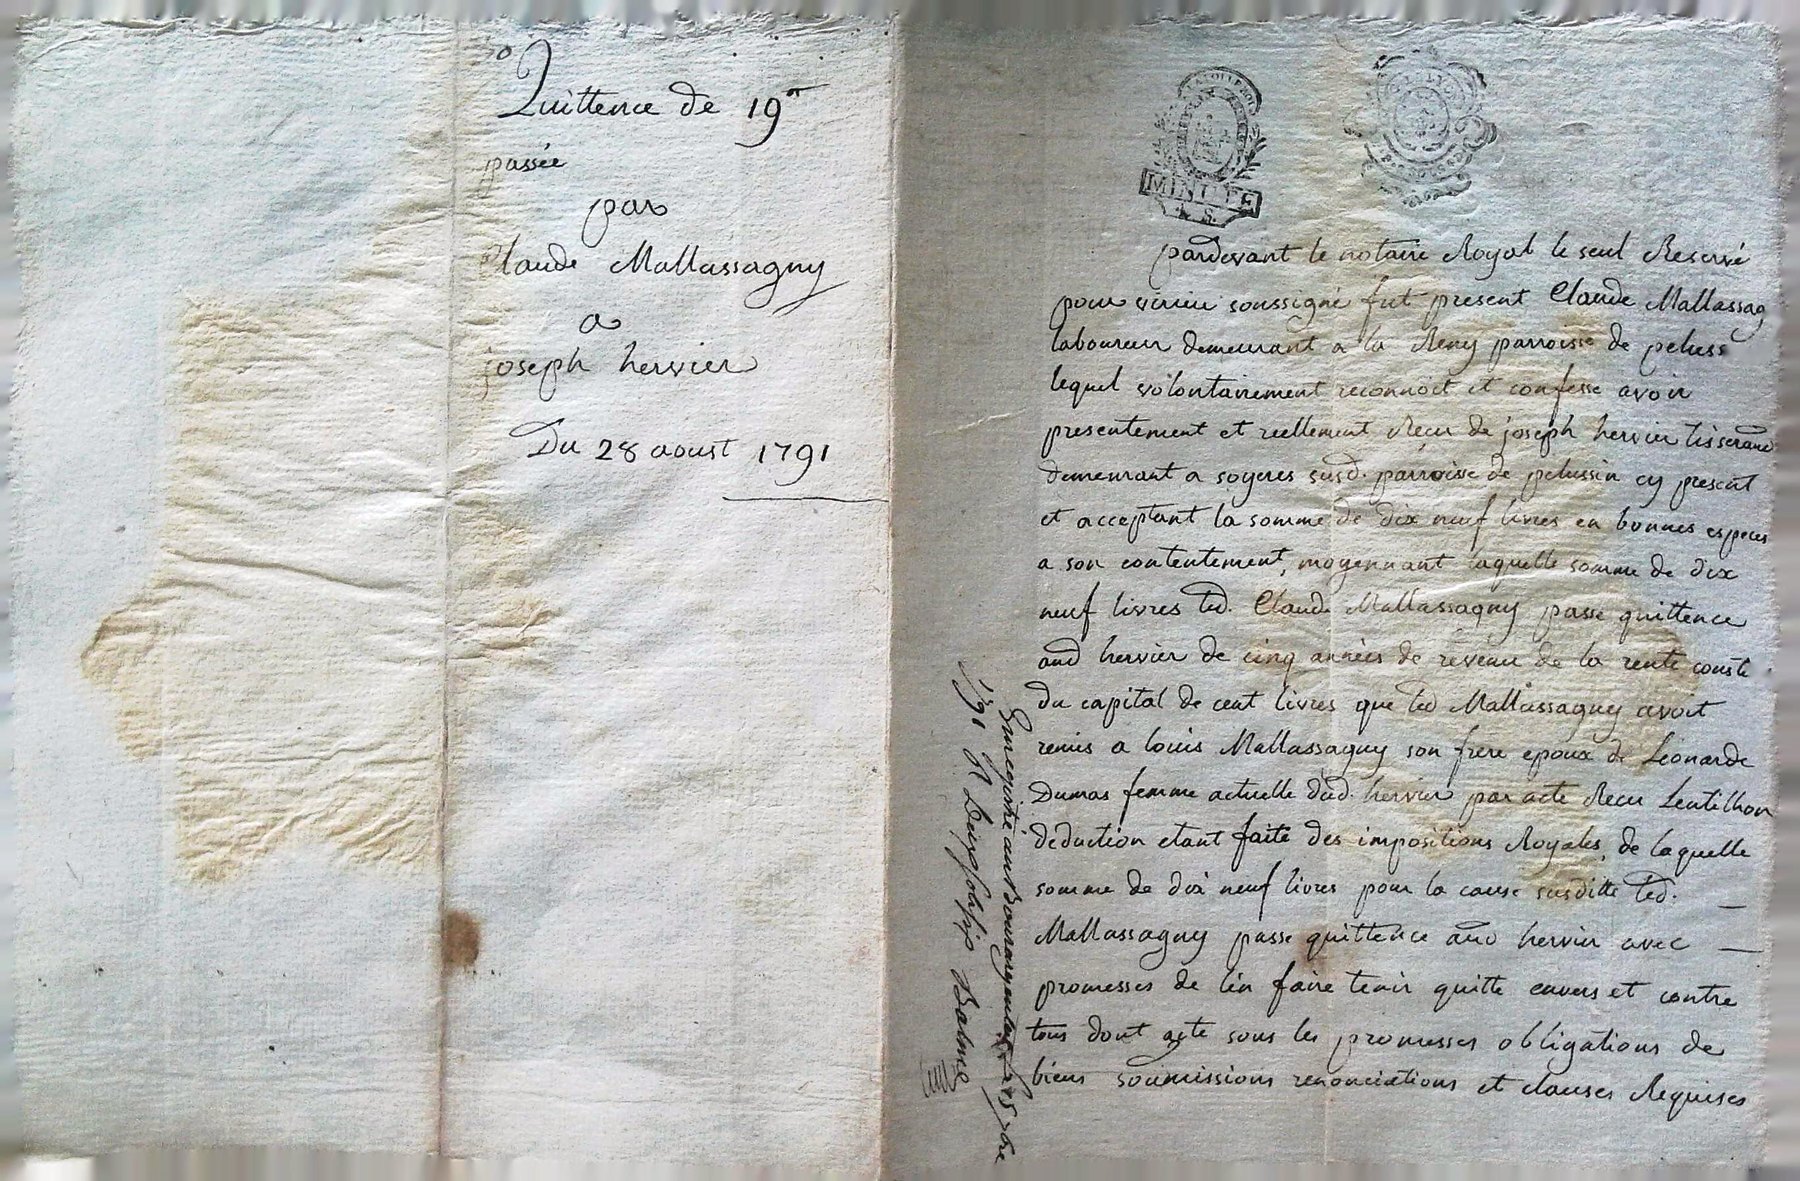 Quittence de 19#
passée
par
Claude Mallassagny
a
joseph hervier
Du 28 aoust 1791
MINUTE
S.
pardevant le notaire Royal le seul Reservé
pour virieu soussigné fut present Claude Mallassag
laboureur demeurant a la Remy parroisse de peluss
lequel volontairement reconnoit et confesse avoir
presentement et reellement Recu de joseph hervier tisserand
demeurant a soyeres susd. parroisse de pelussin cy present
et acceptant la somme de dix neuf livres en bonnes especes
a son contentement, moyennant laquelle somme de dix
neuf livres led. Claude Mallassagny passe quittence
aud hervier de cinq années de revenu de la rente conste
du capital de cent livres que led Mallassagny avoit
remis a louis Mallassagny son frere epoux de Léonarde
Dumas femme actuelle dud. hervier par acte Recu Lentillon
deduction etant faite des impositions Royales, de laquelle
somme de dix neuf livres pour la cause susditte led.
Mallassagny passe quittence aud hervier avec
promesses de l'en faire tenir quitte envers et contre
tous dont acte sous les promesses obligations de
biens soumissions renonciations et clauses Requises
Enregistré au Bourargental 5 7bre
1791 R Balme